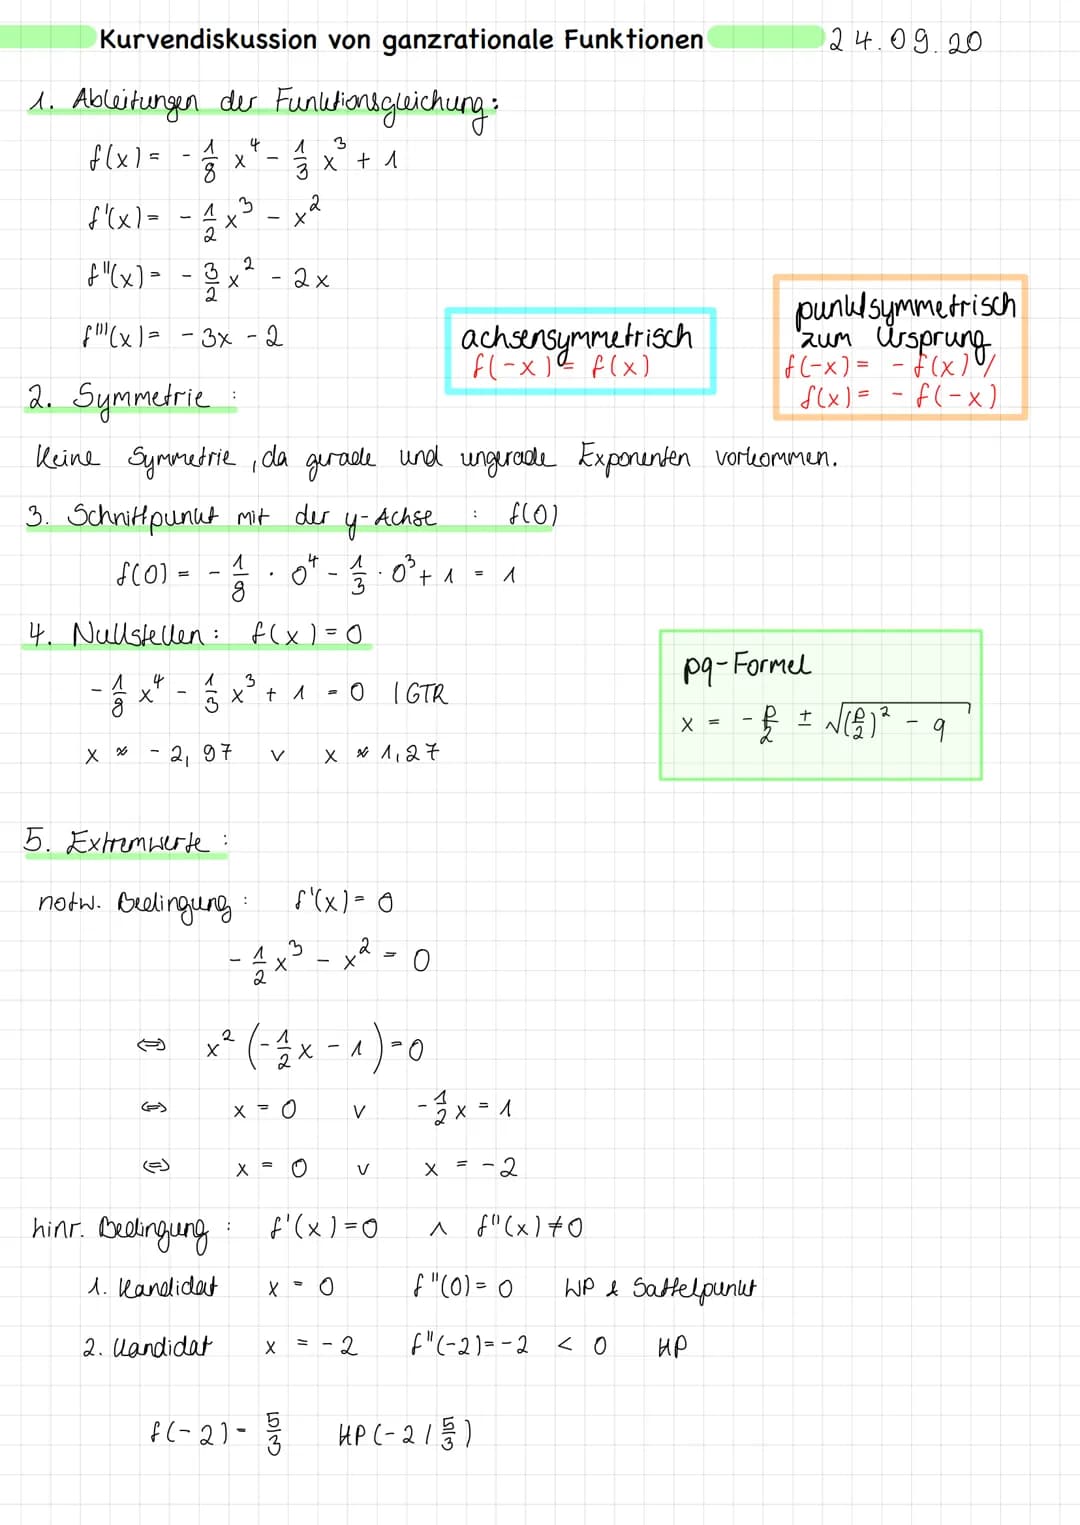 Kurvendiskussion von ganzrationale Funktionen 24.09.20
1. Ableitungen der Funktionsgleichung:
f(x) = - 1/8 x⁴ - 1/3 x³ + 1
f'(x) = - 1/2 x³ - x²
f''(x) = - 3/2 x² - 2x
f'''(x) = - 3x - 2
achsensymmetrisch
f(-x) = f(x)
punktsymmetrisch
zum Ursprung
f(-x) = - f(x) /
f(x) = - f(-x)
2. Symmetrie :
Keine Symmetrie, da gerade und ungerade Exponenten vorkommen.
3. Schnittpunkt mit der y-Achse : f(0)
f(0) = - 1/8 · 0⁴ - 1/3 · 0³ + 1 = 1
4. Nullstellen : f(x) = 0
- 1/8 x⁴ - 1/3 x³ + 1 = 0 | GTR
x ≈ - 2,97 v x ≈ 1,27
pq-Formel
x = - p/2 ± √((p/2)² - q)
5. Extremwerte :
notw. Bedingung : f'(x) = 0
- 1/2 x³ - x² = 0
⇔ x² (- 1/2 x - 1) = 0
⇔ x = 0 v - 1/2 x = 1
⇔ x = 0 v x = -2
hinr. Bedingung : f'(x) = 0 ∧ f''(x) ≠ 0
1. Kandidat x = 0 f''(0) = 0 WP & Sattelpunkt
2. Kandidat x = - 2 f''(-2) = - 2 < 0 HP
f(-2) = 5/3 HP (-2 / 5/3)